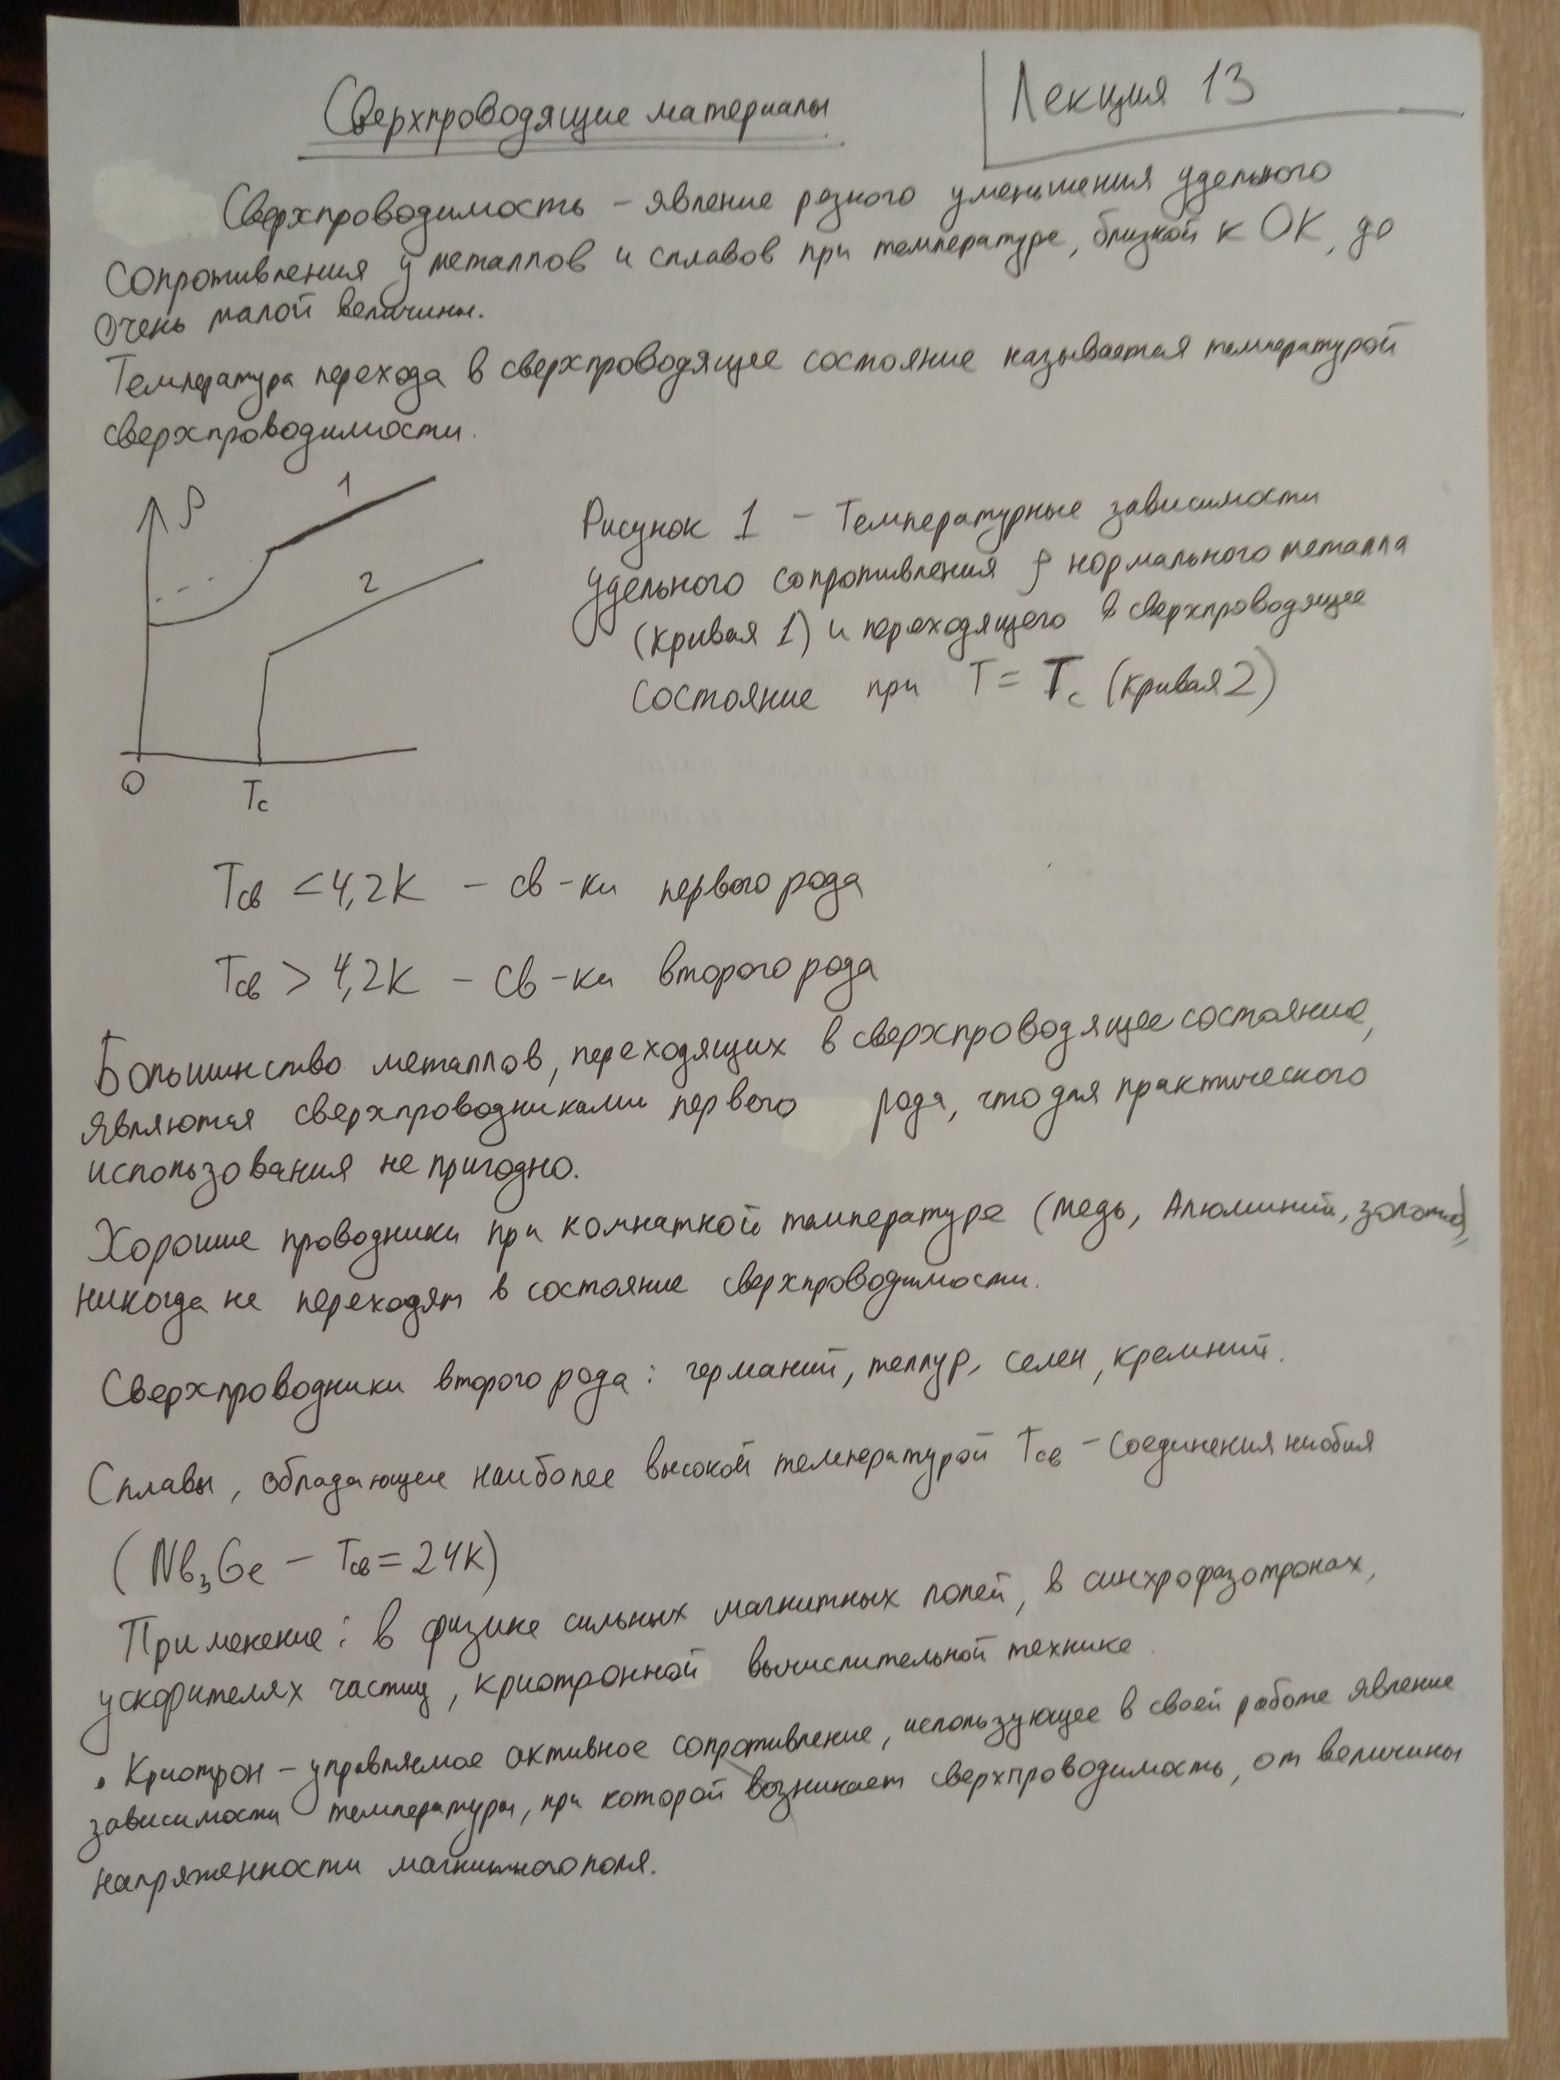 Сверхпроводящие материалы
Лекция 13
Сверхпроводимость – явление резкого уменьшения удельного
сопротивления у металлов и сплавов при температуре, близкой к 0К, до
очень малой величины.
Температура перехода в сверхпроводящее состояние называется температурой
сверхпроводимости.
ρ
1
2
0
Tc
Рисунок 1 – Температурные зависимости
удельного сопротивления ρ нормального металла
(кривая 1) и переходящего в сверхпроводящее
состояние при T = Tc (кривая 2)
Tсв < 4,2К – св-ки первого рода
Tсв > 4,2К – св-ки второго рода
Большинство металлов, переходящих в сверхпроводящее состояние,
являются сверхпроводниками первого рода, что для практического
использования не пригодно.
Хорошие проводники при комнатной температуре (медь, Алюминий, золото),
никогда не переходят в состояние сверхпроводимости.
Сверхпроводники второго рода: германий, теллур, селен, кремний.
Сплавы, обладающие наиболее высокой температурой Tсв – соединения ниобия
(Nb₃Ge – Tсв = 24К)
Применение: в физике сильных магнитных полей, в синхрофазотронах,
ускорителях частиц, криотронной вычислительной технике.
• Криотрон – управляемое активное сопротивление, использующее в своей работе явление
зависимости температуры, при которой возникает сверхпроводимость, от величины
напряженности магнитного поля.